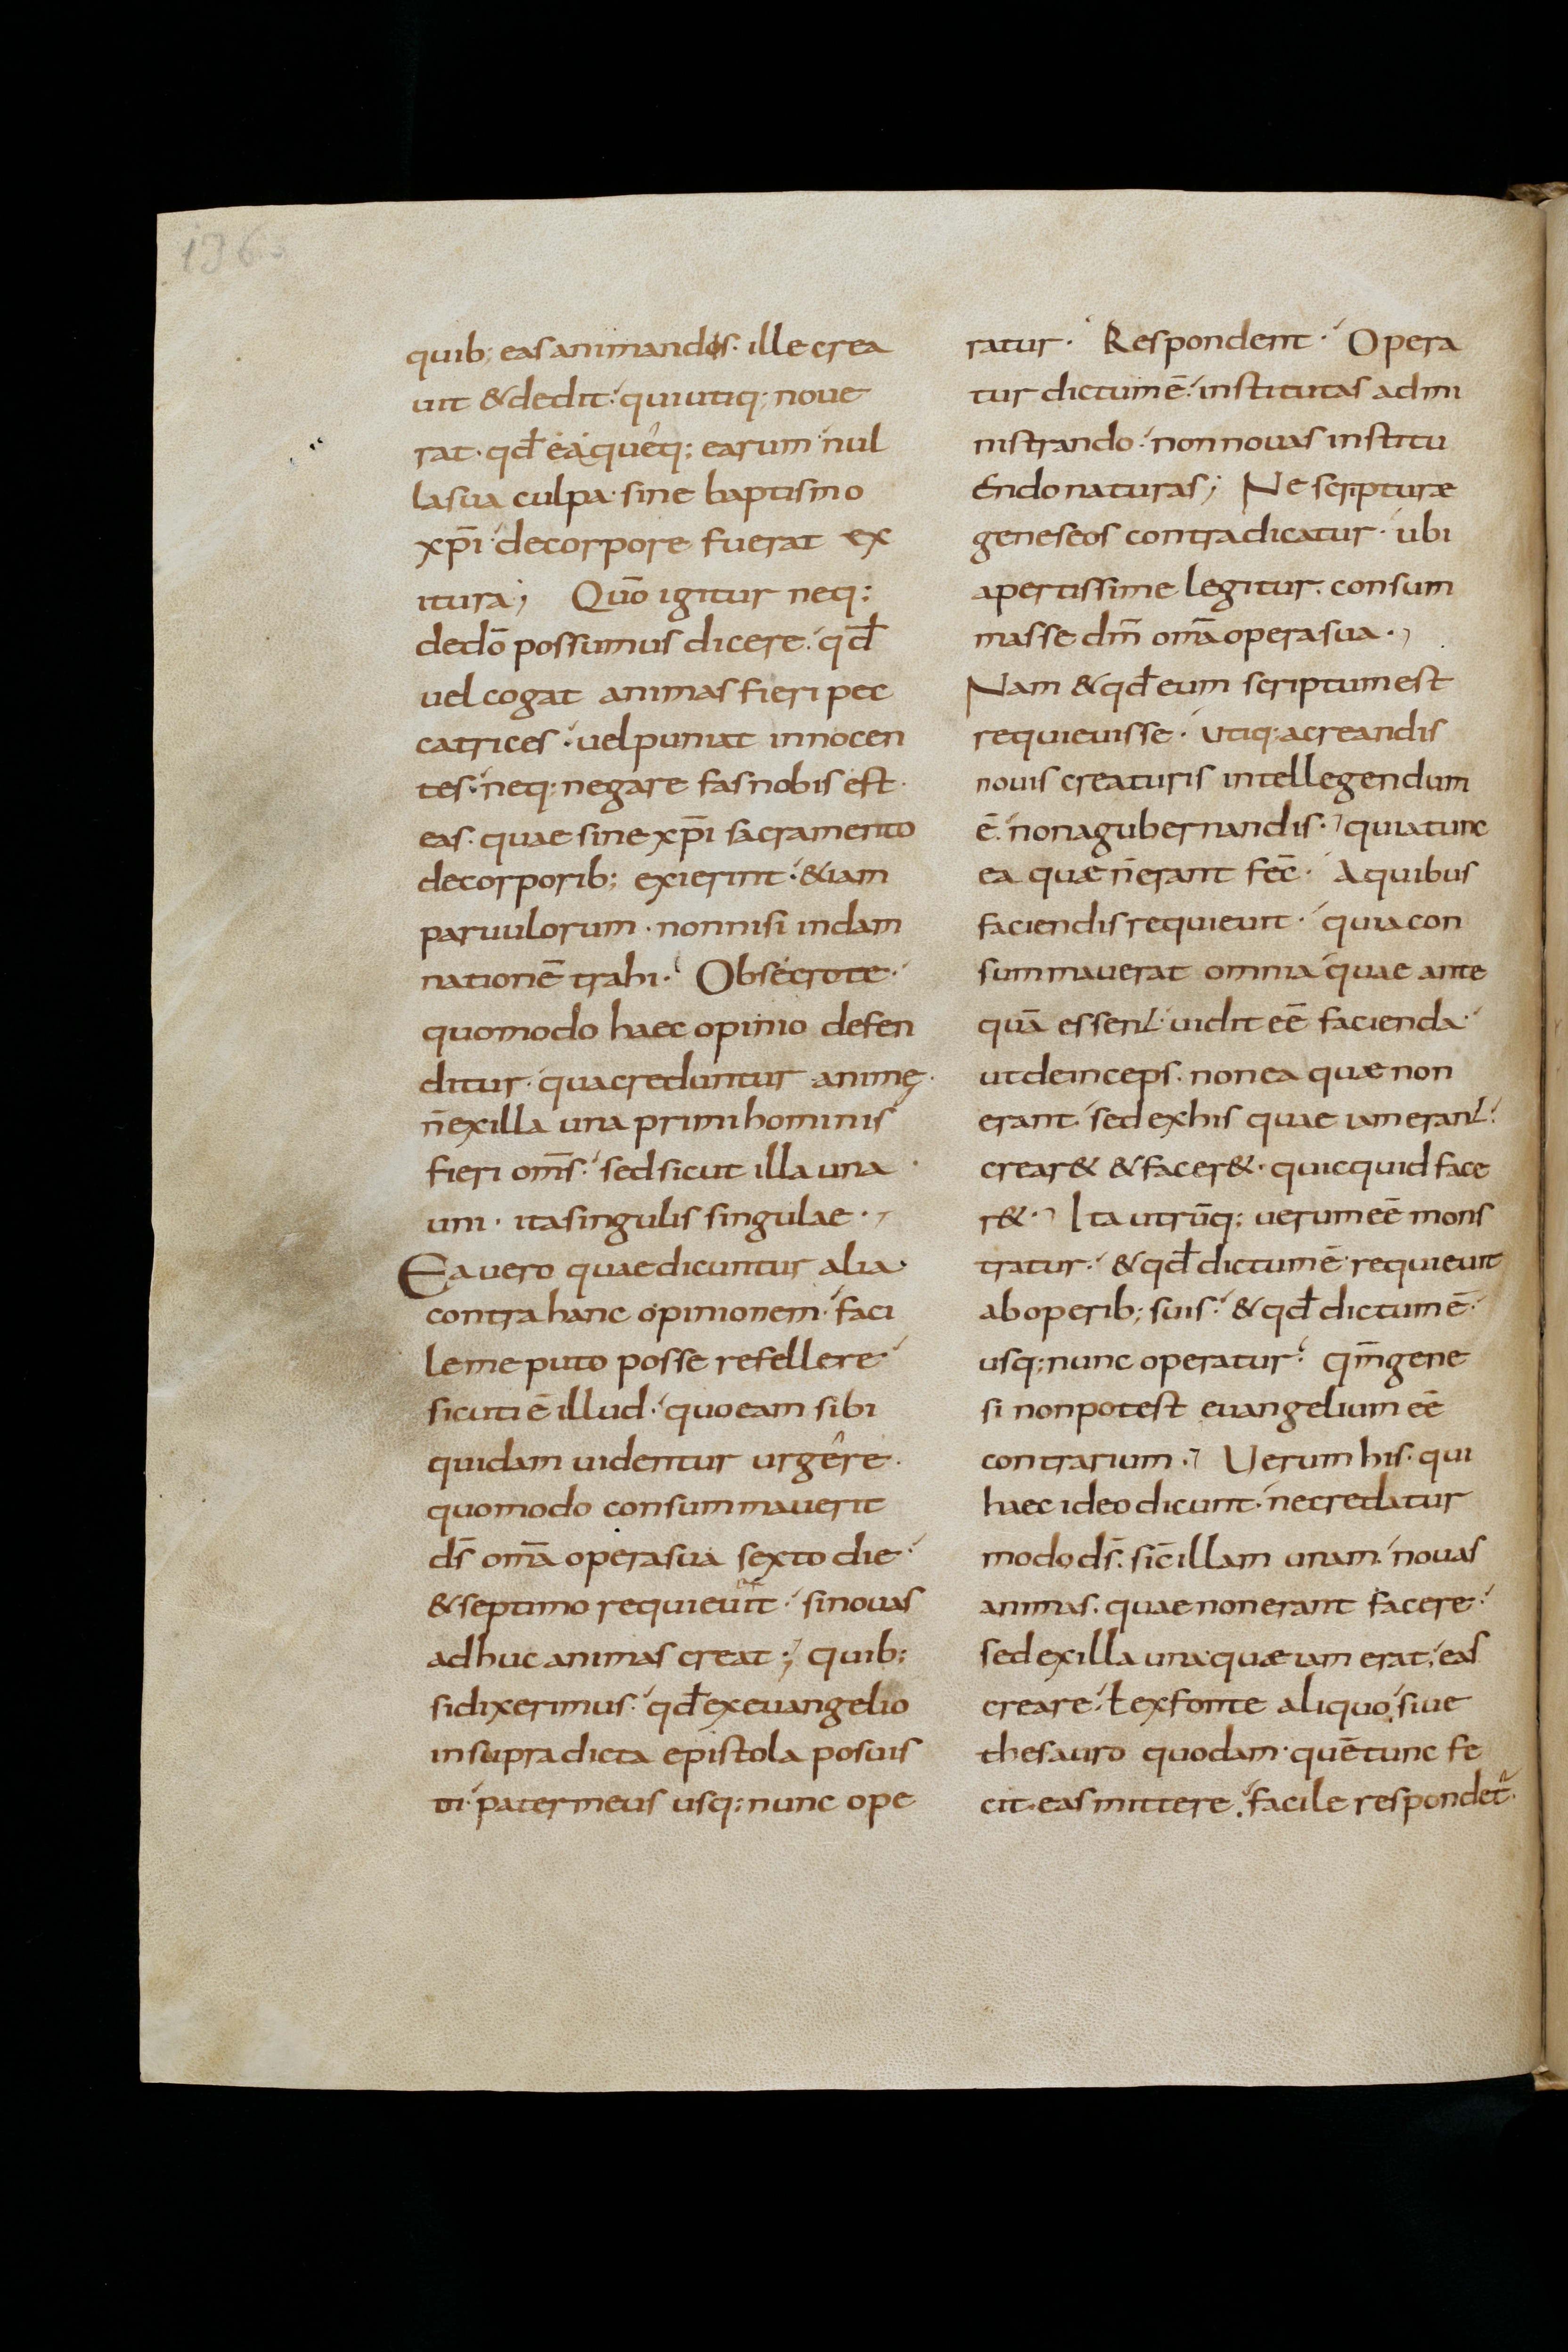 quib; eas animandis. ille crea
uit & dedit. qui utiq; noue
rat. qđ ea quęq; earum nul
la sua culpa. sine baptismo
xp̄i de corpore fuerat ex
itura; Quō igitur neq;
de dō possumus dicere. qđ
uel cogat animas fieri pec
catrices. uel puniat innocen
tes. neq; negare fas nobis est.
eas. quae sine xp̄i sacramento
de corporib; exierint. &iam
paruulorum. non nisi in dam
nationē trahi. Obsecro te.
quomodo haec opinio defen
ditur. qua creduntur animę.
n̄ ex illa una primi hominis
fieri om̄s. sed sicut illa una
uni. ita singulis singulae.
Ea uero quae dicuntur alia.
contra hanc opinionem. faci
le me puto posse refellere
sicuti ē illud. quo eam sibi
quidam uidentur urgêre.
quomodo consummauerit
dś om̄a opera sua sexto die.
& septimo requieuit. si nouas
adhuc animas creat; quib;
si dixerimus. qđ ex euangelio
in supra dicta epistola posuis
ti. pater meus usq; nunc ope
ratur. Respondent. Opera
tur dictum ē. institutas admi
nistrando. non nouas institu
endo naturas; Ne scripturæ
geneseos contradicatur. ubi
apertissime legitur. consum
masse dm̄ om̄a opera sua.
Nam & qđ eum scriptum est
requieuisse. utiq; a creandis
nouis creaturis intellegendum
ē. non a gubernandis. quia tunc
ea quæ n̄ erant fec̄. A quibus
faciendis requieuit. quia con
summauerat omnia quae ante
quā essent. uidit eē facienda.
ut deinceps. non ea quæ non
erant. sed ex his quae iam erant.
crear& & facer&. quicquid face
r&. Ita utrūq; uerum eē mons
tratur. & qđ dictum ē requieuit
ab operib; suis. & qđ dictum ē.
usq; nunc operatur. qm̄ gene
si non potest euangelium eē
contrarium. Uerum his. qui
haec ideo dicunt. ne credatur
modo dś. sic̄ illam unam. nouas
animas. quae non erant facere.
sed ex illa una quæ iam erat, eas
creare. ł ex fonte aliquo siue
thesauro quodam. quē tunc fe
cit. eas mittere. facile respondet̄.